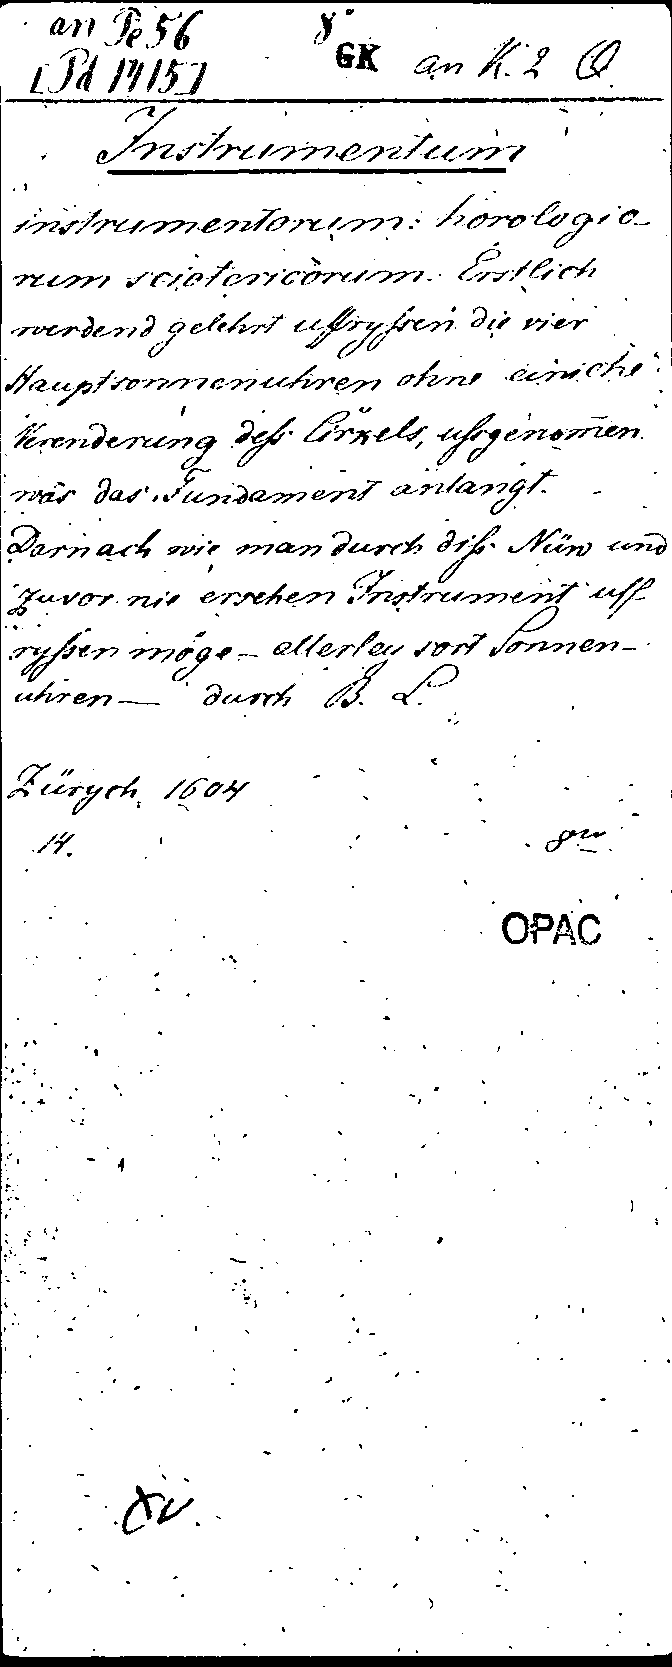 an Pe 56 8° GK an K. 2
[Pd 1415]
Instrumentum
instrumentorum: horologio-
rum sciotericorum. Erstlich
werdend gelehrt uffryssen die vier
Hauptsonnenuhren ohne einiche
Verenderung dess Cirkels, ussgenom̄en
was das Fundament anlangt.
Darnach wie man durch diss Nüw und
zuvor nie ersehen Instrument uff
ryssen möge - allerley sort Sonnen-
uhren — durch B. L.
Zürych 1604
14.
OPAC